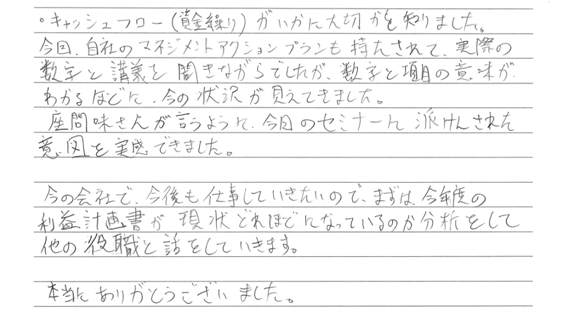 ・キャッシュフロー(資金繰り)がいかに大切かを知りました。
今回、自社のマネジメントアクションプランも持たされて、実際の
数字と講義を聞きながらでしたが、数字と項目の意味が
わかるほどに、今の状況が見えてきました。
座間味さんが言うように、今回のセミナーに派けんされた
意図を実感できました。
今の会社で、今後も仕事していきたいので、まずは今年度の
利益計画書が現状どれほどになっているのか分析をして
他の役職と話をしていきます。
本当にありがとうございました。